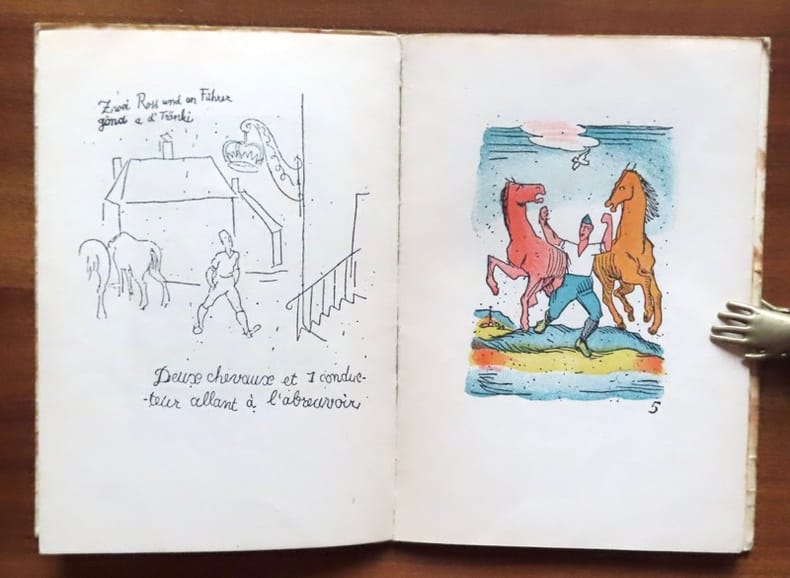 Zwei Ross und en Führer
gönd a d'Tränki
Deux chevaux et 1 conduc-
-teur allant à l'abreuvoir
5